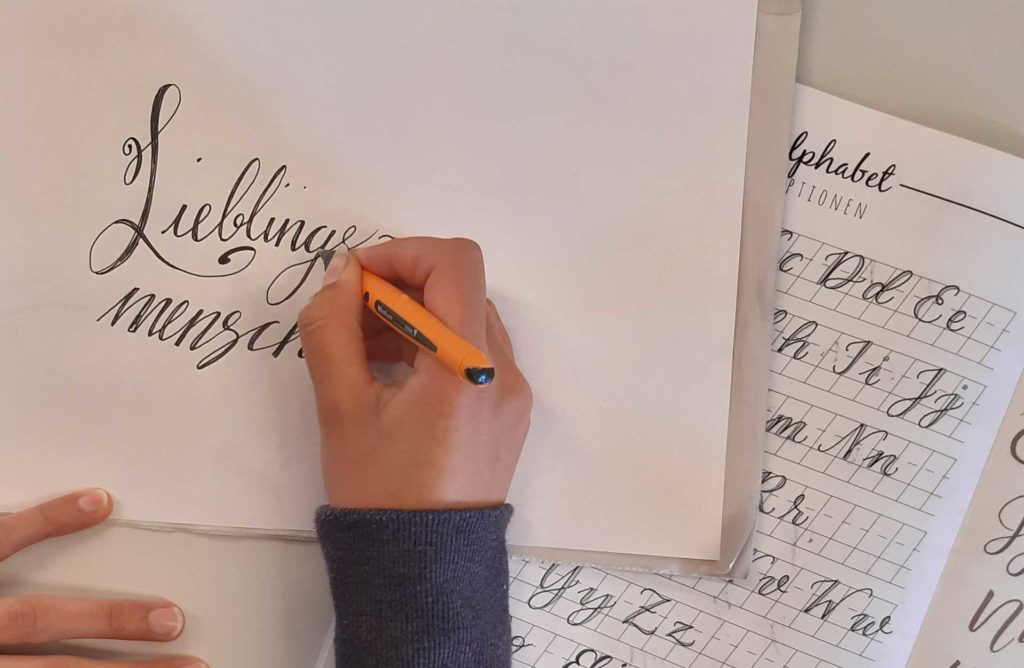 Lieblings
mensch
lphabet
PTIONEN
c Dd Ee
h Ii Jj
m Nn
Rr
v Ww
Yy Zz